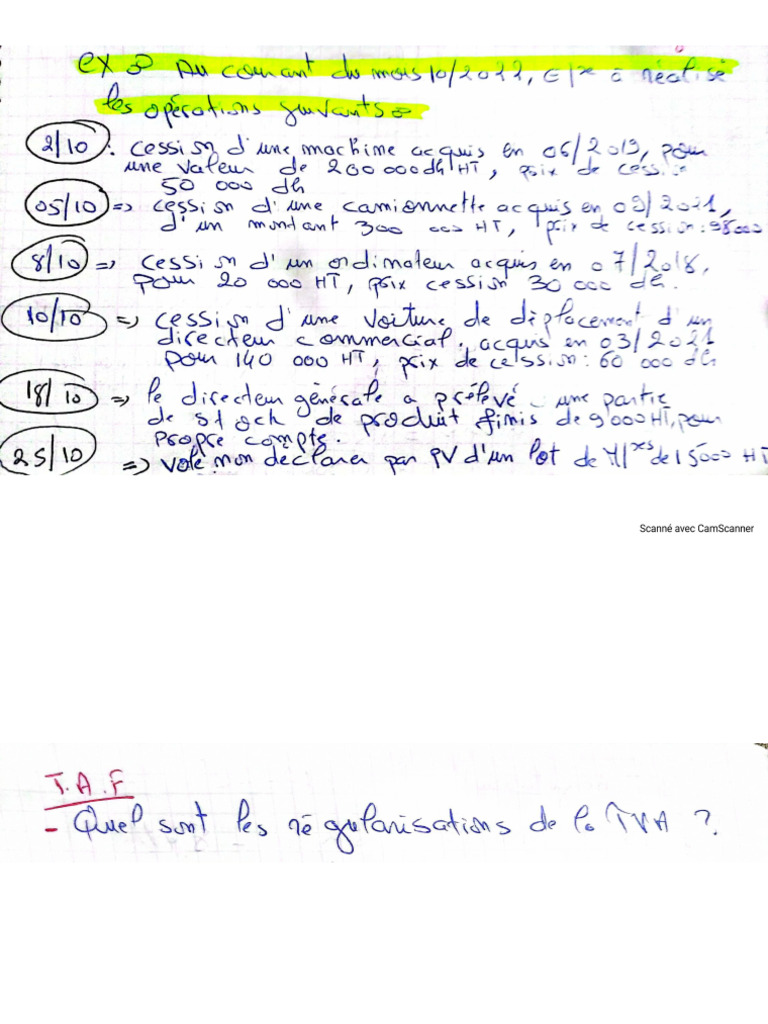 ex : Au courant du mois 10/2022, E/se à réalisé
les opérations suivants :
2/10 : cession d'une machine acquis en 06/2019, pour
une valeur de 200 000 dh HT, prix de cession
50 000 dh
05/10 => cession d'une camionnette acquis en 09/2021,
d'un montant 300 000 HT, prix de cession : 98000
8/10 => cession d'un ordinateur acquis en 07/2018,
pour 20 000 HT, prix cession 30 000 dh.
10/10 => cession d'une voiture de déplacement d'un
directeur commercial, acquis en 03/2021
pour 140 000 HT, prix de cession : 60 000 dh
18/10 => le directeur générale a prélevé une partie
de stock de produit finis de 9000 HT, pour
propre compte.
25/10 => volé non déclarer par PV d'un lot de M/ses de 15000 HT
Scanné avec CamScanner
T.A.F
- Quel sont les régularisations de la TVA ?